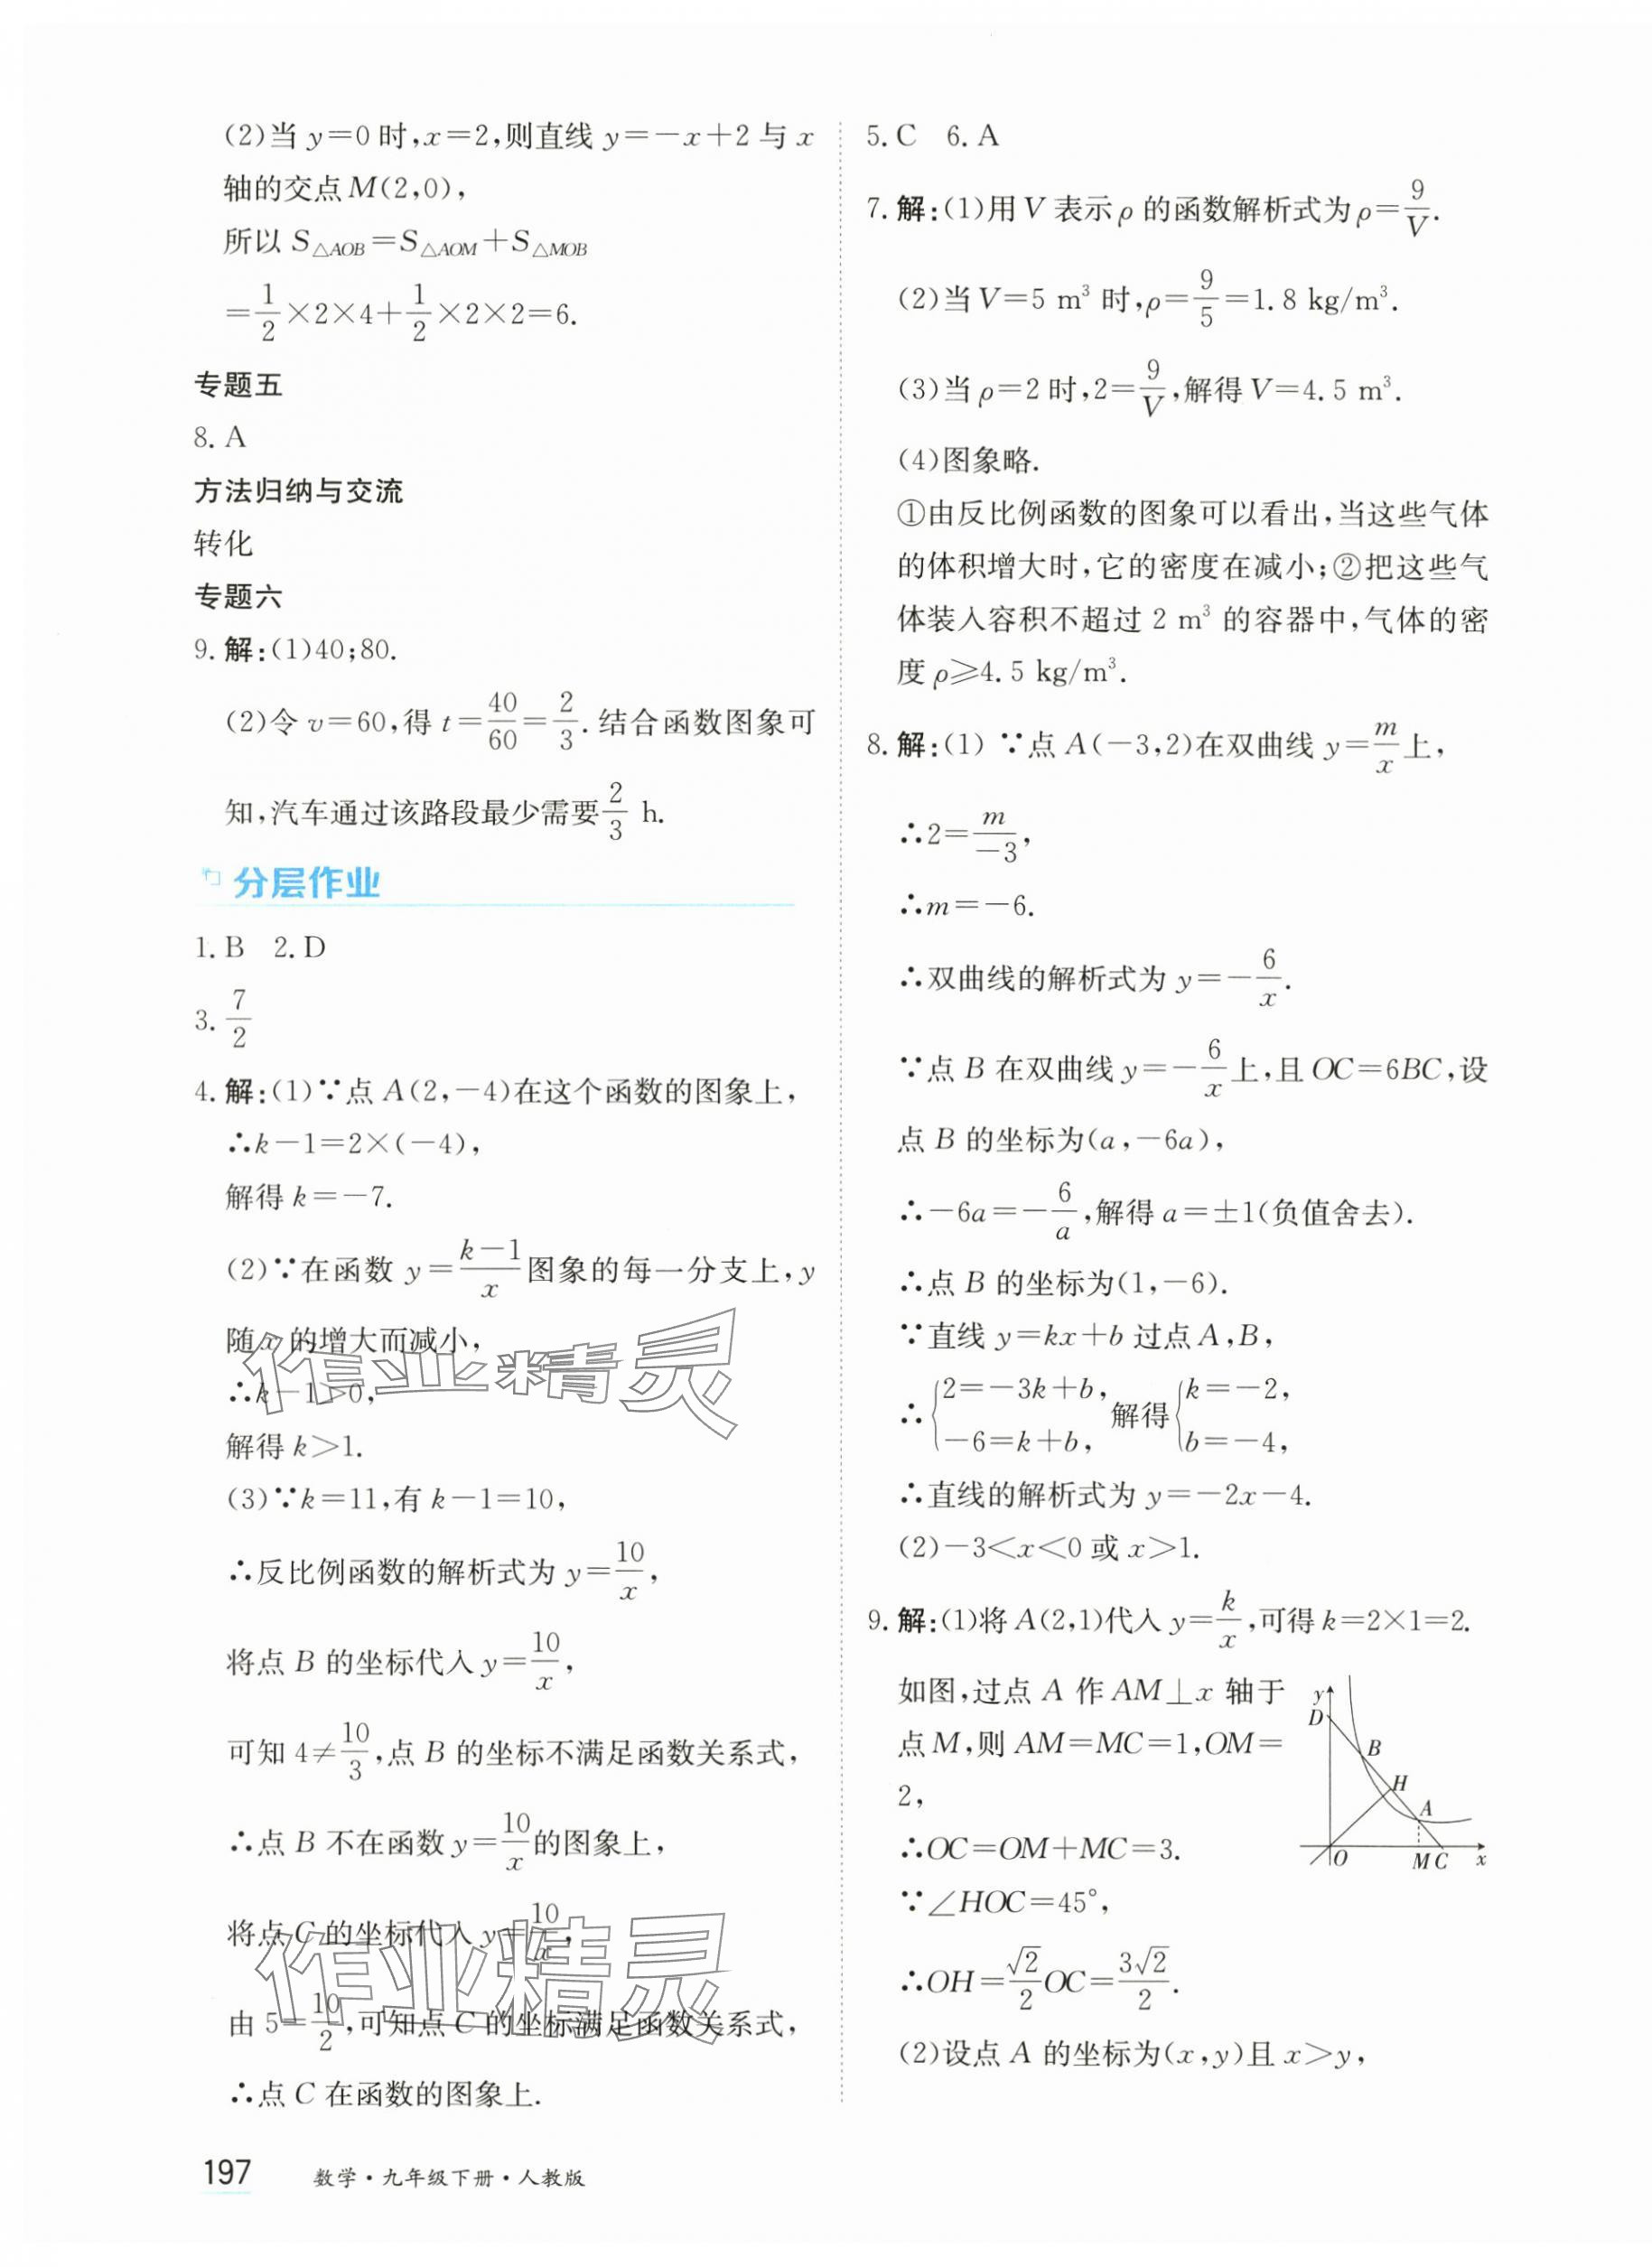 (2)当 y=0 时,x=2,则直线 y=-x+2 与 x
轴的交点 M(2,0),
所以 S△AOB=S△AOM+S△MOB
=1/2×2×4+1/2×2×2=6.
专题五
8. A
方法归纳与交流
转化
专题六
9. 解:(1)40;80.
(2)令 v=60,得 t=40/60=2/3.结合函数图象可
知,汽车通过该路段最少需要2/3 h.
分层作业
1. B 2. D
3. 7/2
4. 解:(1)∵点 A(2,-4)在这个函数的图象上,
∴k-1=2×(-4),
解得 k=-7.
(2)∵在函数 y=(k-1)/x 图象的每一分支上,y
随 x 的增大而减小,
∴k-1>0,
解得 k>1.
(3)∵k=11,有 k-1=10,
∴反比例函数的解析式为 y=10/x,
将点 B 的坐标代入 y=10/x,
可知 4≠10/3,点 B 的坐标不满足函数关系式,
∴点 B 不在函数 y=10/x 的图象上,
将点 C 的坐标代入 y=10/x,
由 5=10/2,可知点 C 的坐标满足函数关系式,
∴点 C 在函数的图象上.
5. C 6. A
7. 解:(1)用 V 表示 ρ 的函数解析式为 ρ=9/V.
(2)当 V=5 m³ 时,ρ=9/5=1.8 kg/m³.
(3)当 ρ=2 时,2=9/V,解得 V=4.5 m³.
(4)图象略.
①由反比例函数的图象可以看出,当这些气体
的体积增大时,它的密度在减小;②把这些气
体装入容积不超过 2 m³ 的容器中,气体的密
度 ρ≥4.5 kg/m³.
8. 解:(1) ∵点 A(-3,2)在双曲线 y=m/x 上,
∴2=m/-3,
∴m=-6.
∴双曲线的解析式为 y=-6/x.
∵点 B 在双曲线 y=-6/x 上,且 OC=6BC,设
点 B 的坐标为(a,-6a),
∴-6a=-6/a,解得 a=±1(负值舍去).
∴点 B 的坐标为(1,-6).
∵直线 y=kx+b 过点 A,B,
∴{2=-3k+b, -6=k+b, 解得{k=-2, b=-4,
∴直线的解析式为 y=-2x-4.
(2)-3<x<0 或 x>1.
9. 解:(1)将 A(2,1)代入 y=k/x,可得 k=2×1=2.
如图,过点 A 作 AM⊥x 轴于
点 M,则 AM=MC=1,OM=
2,
∴OC=OM+MC=3.
∵∠HOC=45°,
∴OH=√2/2 OC=3√2/2.
(2)设点 A 的坐标为(x,y)且 x>y,
y
D
B
H
A
O
M C
x
作业精灵
作业精灵
197 数学·九年级下册·人教版